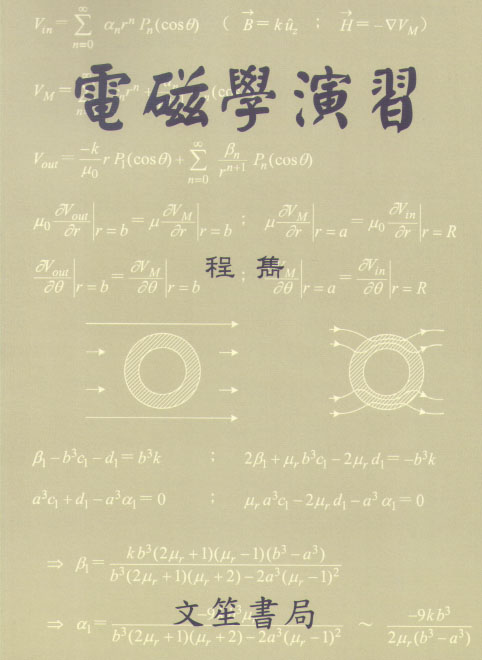 V_in = ∞∑n=0 α_n r^n P_n(cosθ) ( B⃗ = k û_z ; H⃗ = −∇V_M )
電磁學演習
V_M =
V_out = −k/μ_0 r P_1(cosθ) + ∞∑n=0 β_n/r^{n+1} P_n(cosθ)
μ_0 ∂V_out/∂r |r = b = μ ∂V_M/∂r |r = b ; μ ∂V_M/∂r |r = a = μ_0 ∂V_in/∂r |r = R
∂V_out/∂θ |r = b = ∂V_M/∂θ |r = b ; ∂V_M/∂θ |r = a = ∂V_in/∂θ |r = R
程 雋
β_1 − b^3 c_1 − d_1 = b^3 k ; 2β_1 + μ_r b^3 c_1 − 2μ_r d_1 = −b^3 k
a^3 c_1 + d_1 − a^3 α_1 = 0 ; μ_r a^3 c_1 − 2μ_r d_1 − a^3 α_1 = 0
⇒ β_1 = k b^3 (2μ_r + 1)(μ_r − 1)(b^3 − a^3) / b^3 (2μ_r + 1)(μ_r + 2) − 2a^3 (μ_r − 1)^2
文笙書局
⇒ α_1 = / b^3 (2μ_r + 1)(μ_r + 2) − 2a^3 (μ_r − 1)^2 ~ −9kb^3 / 2μ_r (b^3 − a^3)